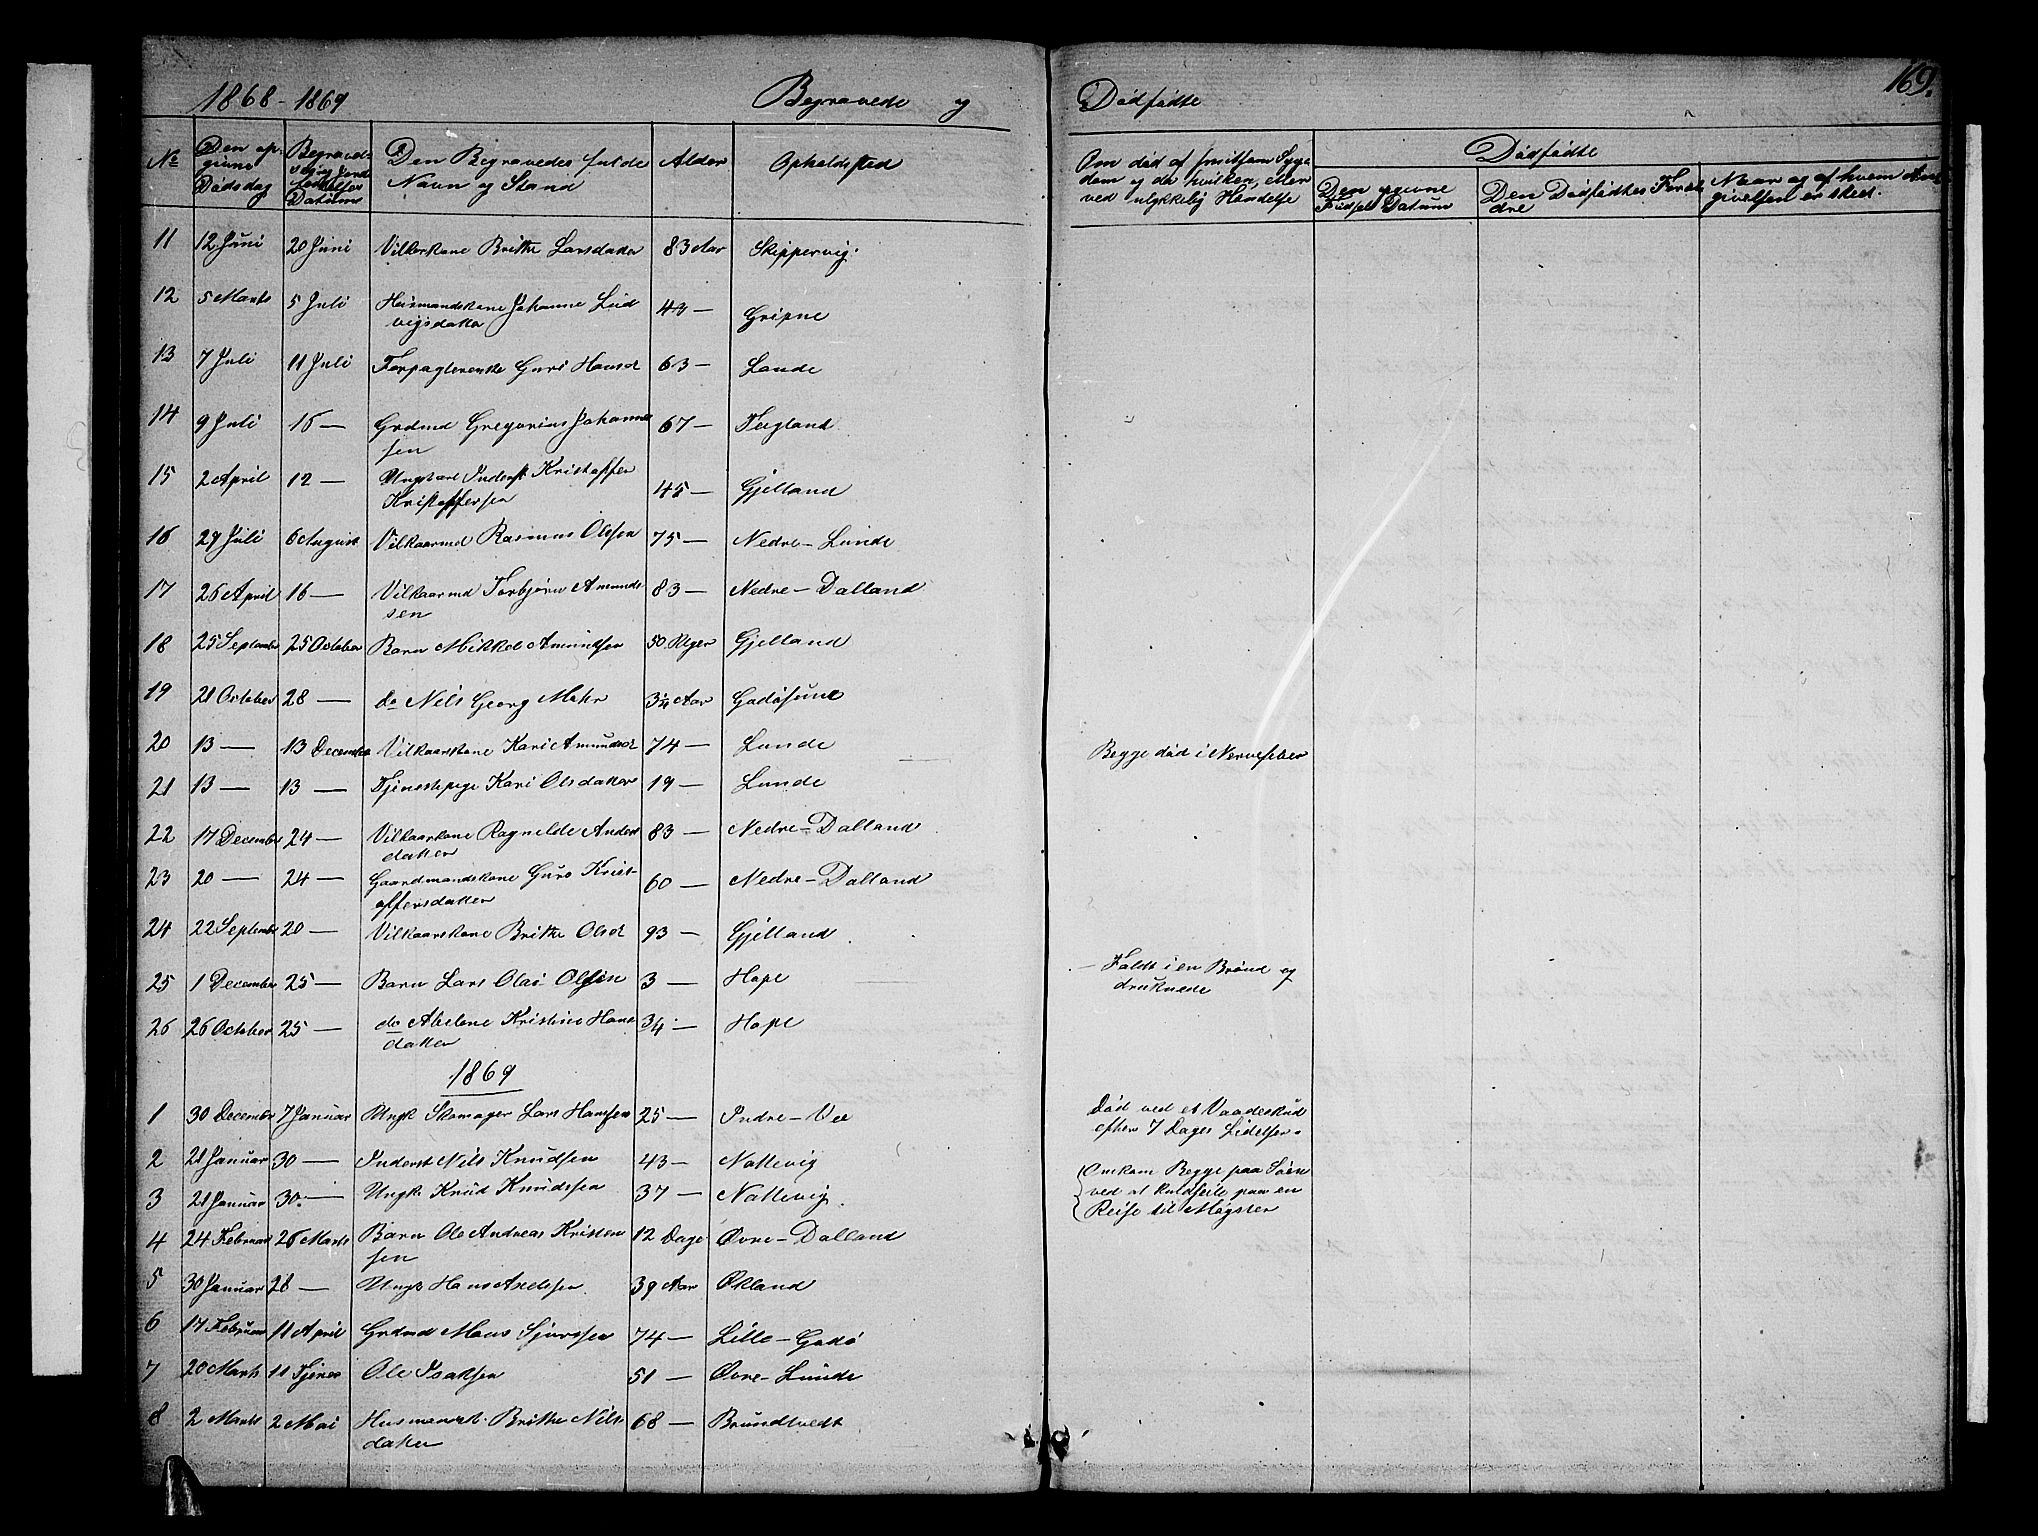 169.
1868-1869 Begravede og Dødfødte
No Den op- Begravel- Den Begravedes fulde Alder Opholdssted Om død af smitsom Syge Dødfødte
givne Navn og Stand dom og da hvilken, eller Den opgivne Den Dødfødtes Foræl Naar og af hvem An
Dødsdag Datum ved ulykkelig Hændelse Fødsels Datum dre givelsen er skeet.
11 12 Juni 20 Juni Vilkorkone Britha Larsdatter 83 Aar Skippervig
12 5 Marts 5 Juli Husmandskone Johanne Lud 43 — Gripne
vigsdatter
13 7 Juli 11 Juli Forpagterenke Guri Hansd 63 — Lande
14 9 Juli 15 — Grdmd Gregorius Johanne 67 — Teigland
sen
15 2 April 12 — Ungkarl Inderst Kristoffer 45 — Gjelland
Kristoffersen
16 29 Juli 6 August Vilkaarmd Rasmus Olssen 75 — Nedre-Lunde
17 26 April 16 — Vilkaarmd Torbjørn Amunds 83 — Nedre-Dalland
sen
18 25 September 25 October Barn Mikkel Amundsen 50 Uger Gjelland
19 21 October 28 — do Nils Georg Mohr 3¼ Aar Godøsund
20 13 — 13 December Vilkaarskone Kari Amundsd 74 — Lunde Begge død i Nervefeber
21 13 — 13 — Tjenestepige Kari Olsdatter 19 — Lunde
22 17 December 24 — Vilkaarkone Ragnilde Anders 83 — Nedre-Dalland
datter
23 20 — 24 — Gaardmandskone Guro Krist- 60 — Nedre-Dalland
offersdatter
24 22 September 20 — Vilkaarskone Britha Olsd 93 — Gjelland
25 1 December 25 — Barn Lars Olai Olsen 3 — Hope — Faldt i en Brønd og
druknede
26 26 October 25 — do Abelene Kristine Hans 3¼ — Hope
datter
1869
1 30 December 7 Januar Ungk Skomager Lars Hansen 25 — Indre-Vee Død ved et Vaadeskud
efter 7 Dages Lidelser.
2 21 Januar 30 — Inderst Nils Knudsen 43 — Nottevig Omkom Begge paa Søen
3 21 Januar 30 — Ungk Knud Knudssen 37 — Nottevig ved at kuldseile paa en
Reise til Møgster
4 24 Februar 26 Marts Barn Ole Andreas Kristen 12 Dage Øvre-Dalland
sen
5 30 Januar 28 — Ungk Hans Axelsen 39 Aar Økland
6 17 Februar 11 April Grdmd Mons Sjurssen 74 — Lille-Godø
7 20 Marts 11 Tjener Ole Isaksen 51 — Øvre-Lunde
8 2 Marts 2 Mai Britha Nils 68 — Brundtvedt
datter